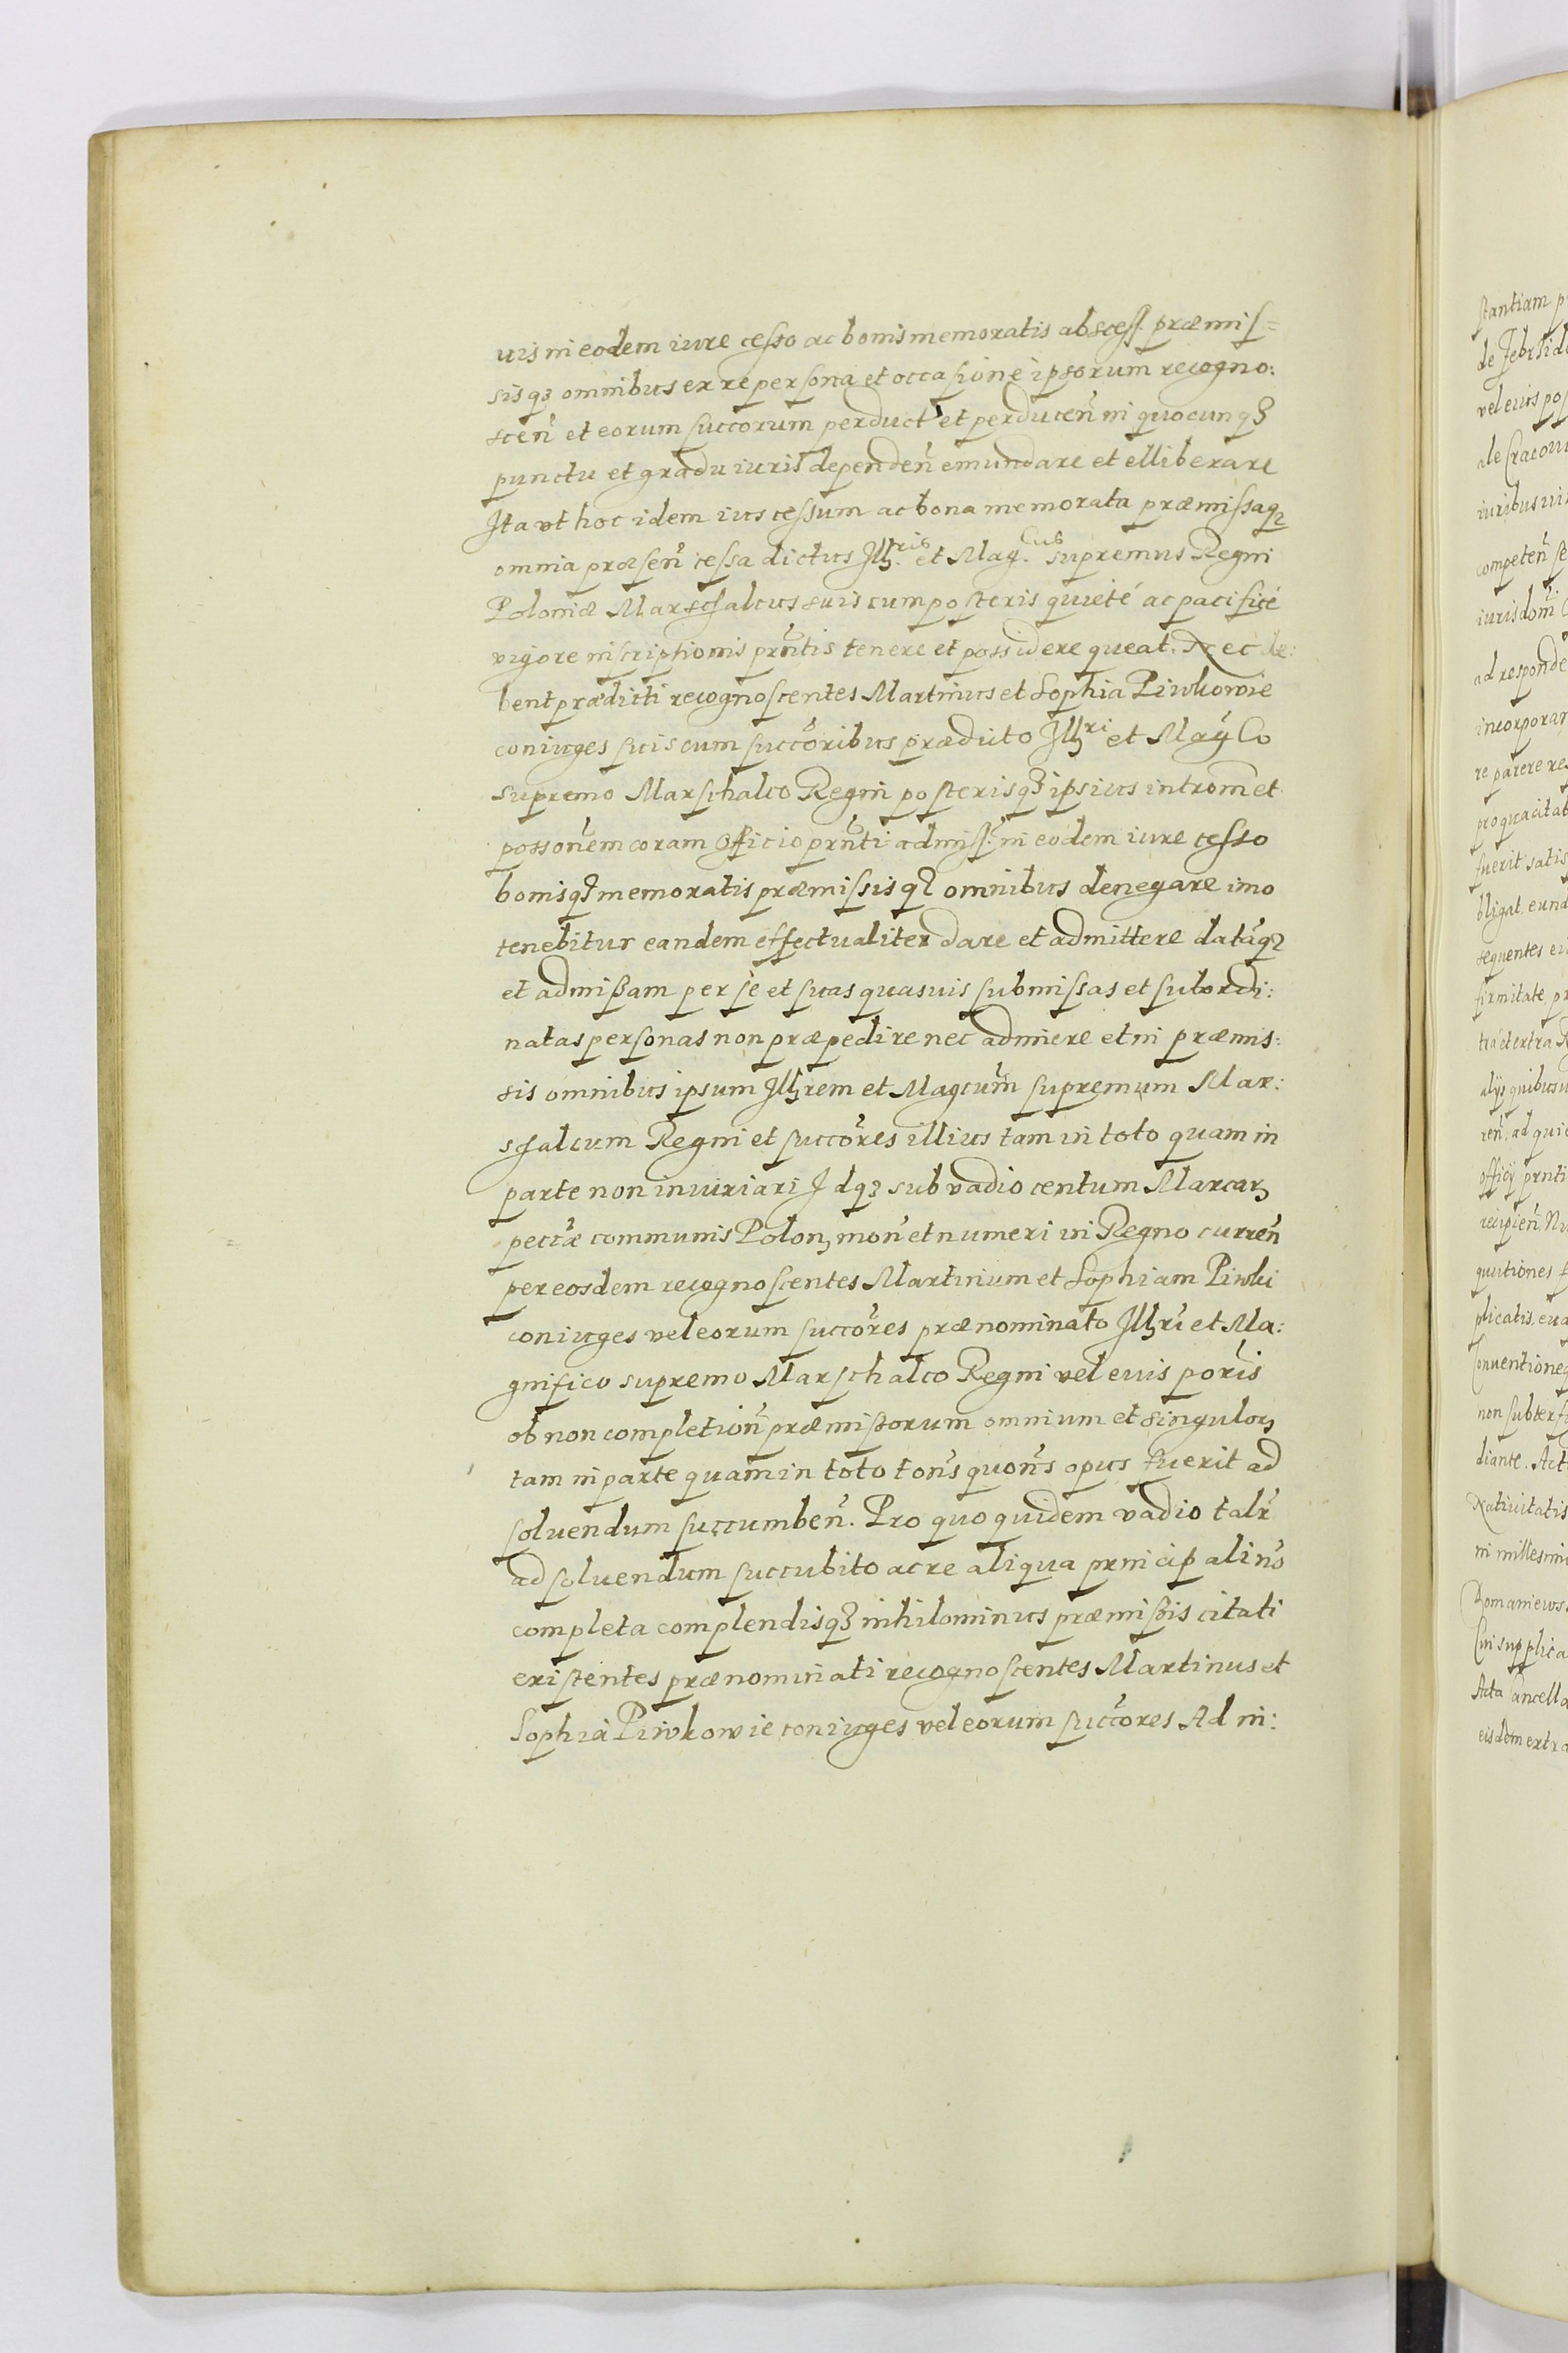 uis in eodem iure cesso ac bonis memoratis ab scess. præmis=
sisq3 omnibus ex re persona et occasione ipsorum recogno:
scen̄ et eorum succorum perduct' et perducen̄ in quocunq3
punctu et gradu iuris dependen̄ emundare et elliberare
Ita vt hoc idem ius cessum ac bona memorata præmissaq3
omnia præsen̄ cessa dictus Ill.ris et Mag.cus supremus Regni
Poloniæ Marschalcus suis cum posteris quieté ac pacificé
vigore inscriptionis prn̄tis tenere et possidere queat. Nec de:
bent prædicti recognoscentes Martinus et Sophia Piwkowie
coniuges suis cum succōribus prædicto Illri et Mag̃Co
supremo Marschalco Regni posterisq3 ipsius intromet
possōnem coram Officio prn̄ti admiss. in eodem iure cesso
bonisq3 memoratis præmissisq3 omnibus denegare imo
tenebitur eandem effectualiter dare et admittere datāq3
et admißam per se et suas quasuis submissas et subordi:
natas personas non præpedire nec adimere et in præmis:
sis omnibus ipsum Illrem et Magcum̃ supremum Mar:
schalcum Regni et succōres illius tam in toto quam in
parte non iniuriari Idq3 sub vadio centum Marcarꝫ
peccæ̃ communis Polonꝫ mon̄ et numeri in Regno curren̄
per eosdem recognoscentes Martinum et Sophiam Piwki
coniuges vel eorum succōres prænominato Illri et Ma:
gnifico supremo Marschalco Regni vel euis pōris
ob non completion̄ præmißorum omnium et singulorꝫ
tam in parte quam in toto ton̄s quon̄s opus fuerit ad
soluendum succumben̄. Pro quo quidem vadio talr̄
ad soluendum succubito ac re aliqua principalin̄o
completa complendisq3 nihilominus præmißis citati
existentes prænominati recognoscentes Martinus et
Sophia Piwkowie coniuges vel eorum succōres Ad in:
stantiam
vel eius
ale
iuribus
competen̄
ad
re parere
fuerit satis
sequentes
firmitate
officij prnti
recipien̄
plicatis
diante. Act
Natiuitatis
Acta